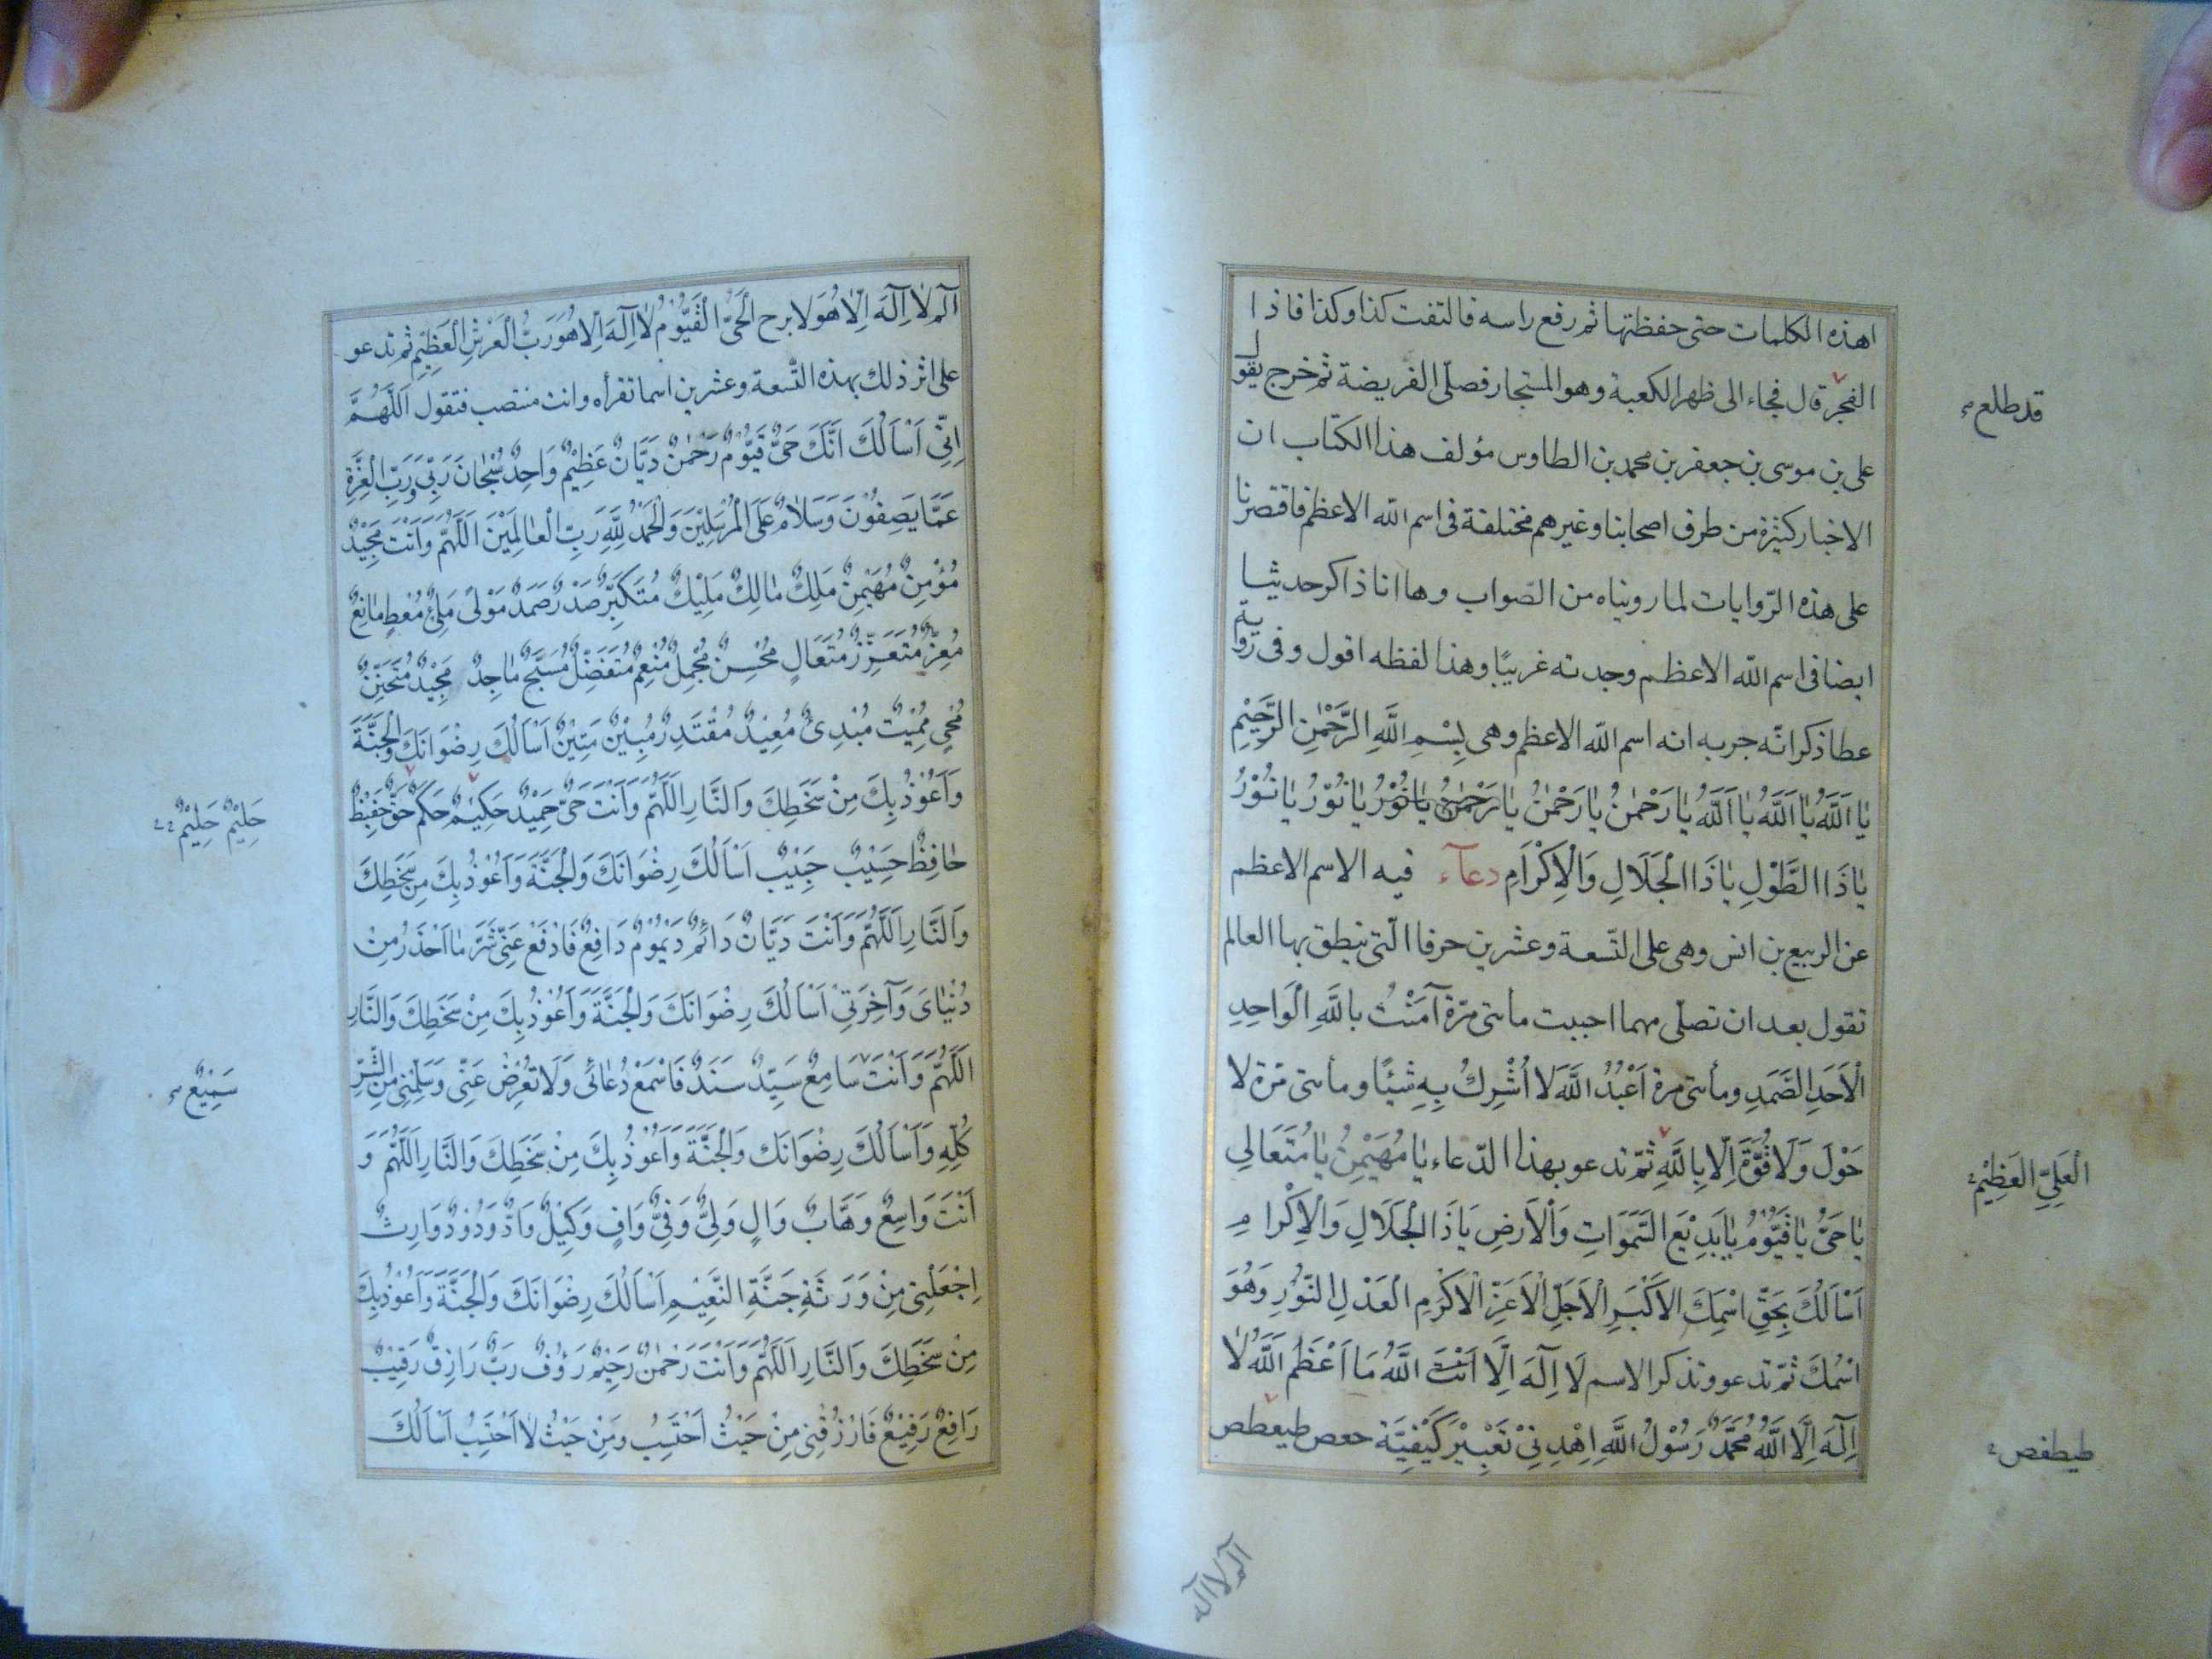 اهذه الكلمات حتى حفظتها ثم رفع راسه فالتفت كذا وكذا فاذا
الفجر قال فجاء الى ظهر الكعبة وهو المستجار فصلّى الفريضة ثم خرج يقول
قد طلع
على بن موسى بن جعفر بن محمد بن الطاوس مؤلف هذا الكتاب ان
الاخبار كثيرة من طرق اصحابنا وغيرهم مختلفة فى اسم الله الاعظم فاقتصرنا
على هذه الرّوايات لما رويناه من الصّواب وها انا ذاكر حديثا
ايضا فى اسم الله الاعظم وجدته غريبًا وهذا لفظه اقول وفى رواية
عطا ذكر انّه جربه انه اسم الله الاعظم وهى بِسْمِ اللَّهِ الرَّحْمٰنِ الرَّحِيْمِ
يٰا اَللَّهُ يٰا اَللَّهُ يٰا اَللَّهُ يٰا رَحْمٰنُ يٰا رَحْمٰنُ يٰا رَحْمٰنُ يٰا نُوْرُ يٰا نُوْرُ يٰا نُوْرُ
يٰا ذَا الطَّوْلِ يٰا ذَا الْجَلَالِ وَالْاِكْرٰامِ دعآء فيه الاسم الاعظم
عن الربيع بن انس وهى على التّسعة وعشرين حرفا الّتى ينطق بها العالم
تقول بعد ان تصلّى مهما احببت مأتى مرّة آمَنْتُ بِاللَّهِ الْوَاحِدِ
الْاَحَدِ الصَّمَدِ ومأتى مرة اَعْبُدُ اللَّهَ لَا اُشْرِكُ بِهِ شَيْئًا ومأتى مرّة لا
حَوْلَ وَلَا قُوَّةَ اِلَّا بِاللَّهِ ثمّ تدعو بهذا الدّعاء يٰا مُهَيْمِنُ يٰا مُتَعَالِى
الْعَلِىِّ العَظِيْمِ
يٰا حَىُّ يٰا قَيُّوْمُ يٰا بَدِيْعَ السَّمَوَاتِ وَالْاَرضِ يَا ذَا الْجَلَالِ وَالْاِكْرامِ
اَسْاَلُكَ بِحَقِّ اسْمِكَ الاَكْبَرِ الْاَجَلِّ الْاَعَزِّ الْاَكْرَمِ الْعَدْلِ النُّوْرِ وَهُوَ
اسْمُكَ ثمّ تدعو وتذكر الاسم لَا اِلَهَ اِلَّا اَنْتَ اللَّهُ مَا اَعْظَمُ اللَّهُ لا
اِلَهَ اِلَّا اللَّهُ مُحَمَّدٌ رَسُوْلُ اللَّهِ اِهْدِنِىْ تَعْبِيْرَ كَيْفِيَّة حعص طيعطص
طيطفص
الم لا اله
الٓمٓ لٰا اِلٓهَ اِلَّا هُوَ لا برح الْحَىُّ الْقَيُّوْمُ لَا اِلَهَ اِلَّا هُوَ رَبُّ الْعَرْشِ الْعَظِيْمِ ثم تدعو
على اثر ذلك بهذه التّسعة وعشرين اسما تقرأه وانت منتصب فتقول اَللَّهُمَّ
اِنِّى اَسْاَلُكَ اَنَّكَ حَىٌّ قَيُّوْمٌ رَحْمٰنٌ دَيَّانٌ عَظِيْمٌ وَاحِدٌ سُبْحٰانَ رَبِّى وَرَبِّ الْعِزَّةِ
عَمَّا يَصِفُوْنَ وَسَلَامٌ عَلَى الْمُرْسَلِيْنَ وَالْحَمْدُ لِلَّهِ رَبِّ الْعٰالَمِيْنَ اَللَّهُمَّ وَاَنْتَ مَجِيْدٌ
مُؤْمِنٌ مُهَيْمِنٌ مَلِكٌ مٰالِكٌ مَلِيْكٌ مُتَكَبِّرٌ صَدْرٌ صَمَدٌ مَوْلىً مَلِىٌّ مُعْطٍ مٰانِعٌ
مُعِزٌّ مُتَعَزِّزٌ مُتَعَالٍ مُحْسِنٌ مُجْمِلٌ مُنْعِمٌ مُتَفَضِّلٌ مُسَبَّحٌ مٰاجِدٌ مَجِيْدٌ مُتَحَنِّنٌ
مُحْيٍ مُمِيْتٌ مُبْدِئٌ مُعِيْدٌ مُقْتَدِرٌ مُبِيْنٌ مَتِيْنٌ اَسْاَلُكَ رِضْوَانَكَ وَالْجَنَّةَ
وَاَعُوْذُ بِكَ مِنْ سَخَطِكَ وَالنَّارِ اَللَّهُمَّ وَاَنْتَ حَىٌّ حَمِيْدٌ حَكِيْمٌ حَكَمٌ حَقٌّ حَفِيْظٌ
حَلِيْمٌ حَلِيْمٌ
حٰافِظٌ حَسِيْبٌ حَبِيْبٌ اَسْاَلُكَ رِضْوَانَكَ وَالْجَنَّةَ وَاَعُوْذُ بِكَ مِن سَخَطِكَ
وَالنَّارِ اَللَّهُمَّ وَاَنْتَ دَيَّانٌ دَائِمٌ دَيْمُوْمٌ دَافِعٌ فَادْفَعْ عَنِّى شَرَّ مٰا اَحْذَرُ مِنْ
دُنْيٰاىَ وَآخِرَتِىْ اَسْاَلُكَ رِضْوَانَكَ وَالْجَنَّةَ وَاَعُوْذُ بِكَ مِنْ سَخَطِكَ وَالنَّارِ
اَللَّهُمَّ وَاَنْتَ سَامِعٌ سَيِّدٌ سَنَدٌ فَاسْمَعْ دُعٰائِى وَلَا تُعْرِضْ عَنِّى وَسَلِّمْنِى مِنَ الشَّرِّ
سَمِيْعٌ
كُلِّهِ وَاَسْاَلُكَ رِضْوَانَكَ وَالْجَنَّةَ وَاَعُوْذُ بِكَ مِنْ سَخَطِكَ وَالنَّارِ اَللَّهُمَّ وَ
اَنْتَ وَاسِعٌ وَهَّابٌ وَالٍ وَلِىٌّ وَفِىٌّ وَافٍ وَكِيْلٌ وَادٌّ وَدُوْدٌ وَارِثٌ
اِجْعَلْنِى مِنْ وَرَثَةِ جَنَّةِ النَّعِيْمِ اَسْاَلُكَ رِضْوَانَكَ وَالْجَنَّةَ وَاَعُوْذُ بِكَ
مِنْ سَخَطِكَ وَالنَّارِ اَللَّهُمَّ وَاَنْتَ رَحْمٰنٌ رَحِيْمٌ رَؤُفٌ رَبٌّ رَازِقٌ رَقِيْبٌ
رَافِعٌ رَفِيْعٌ فَارْزُقْنِى مِنْ حَيْثُ اَحْتَسِبُ وَمِنْ حَيْثُ لٰا اَحْتَسِبُ اَسْاَلُكَ